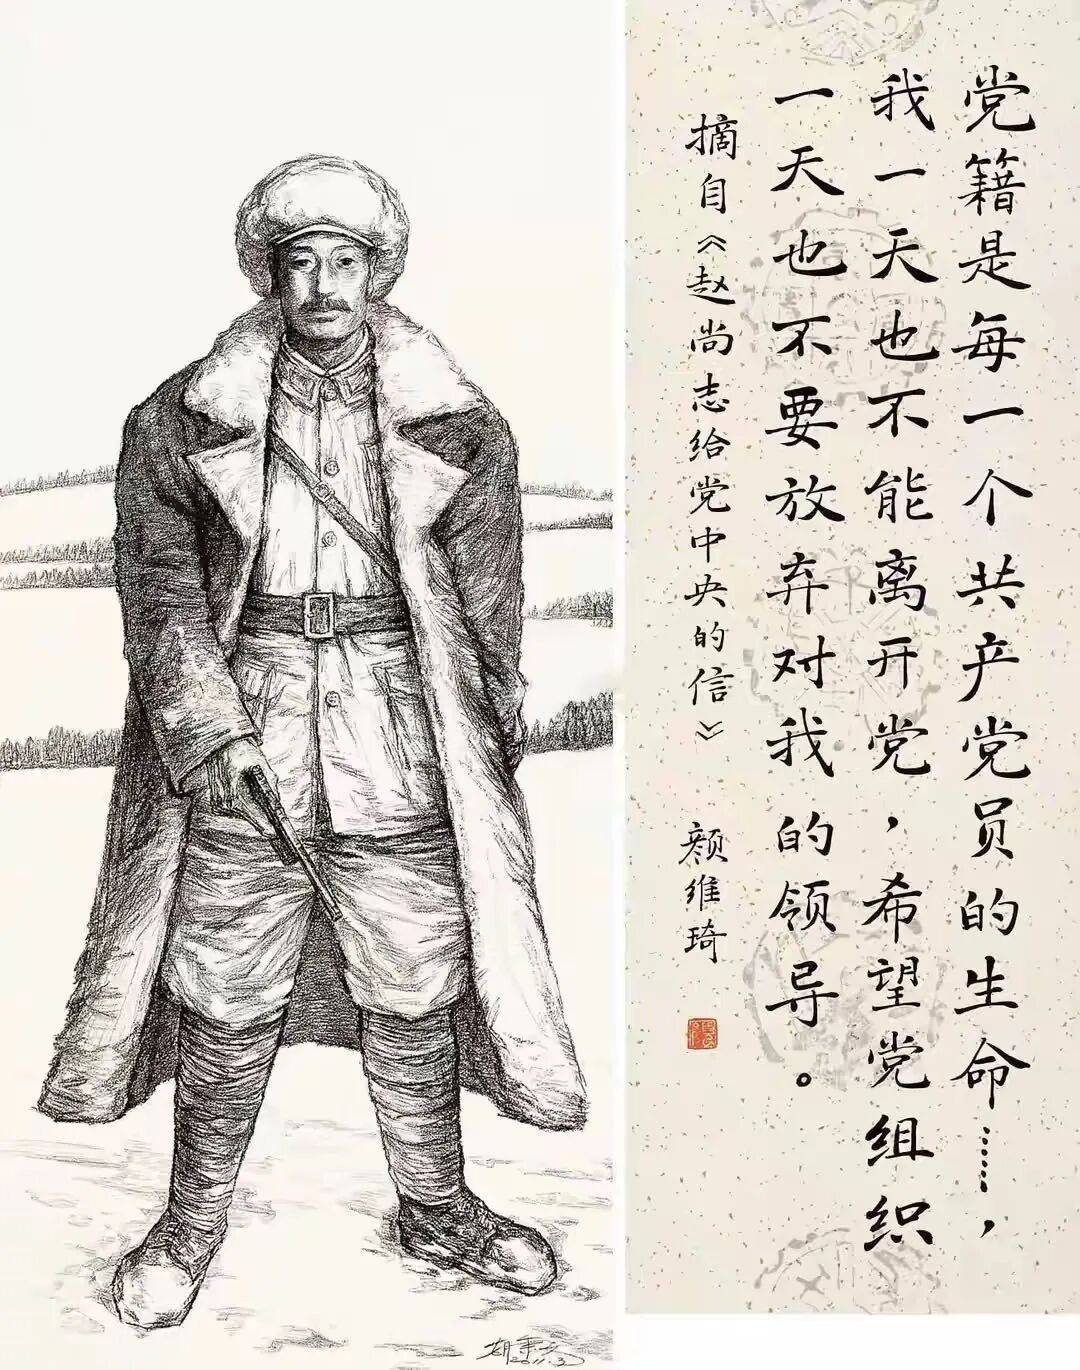 党籍是每一个共产党员的生命……，
我一天也不能离开党，希望党组织
一天也不要放弃对我的领导。
摘自《赵尚志给党中央的信》 颜维琦
2011.3